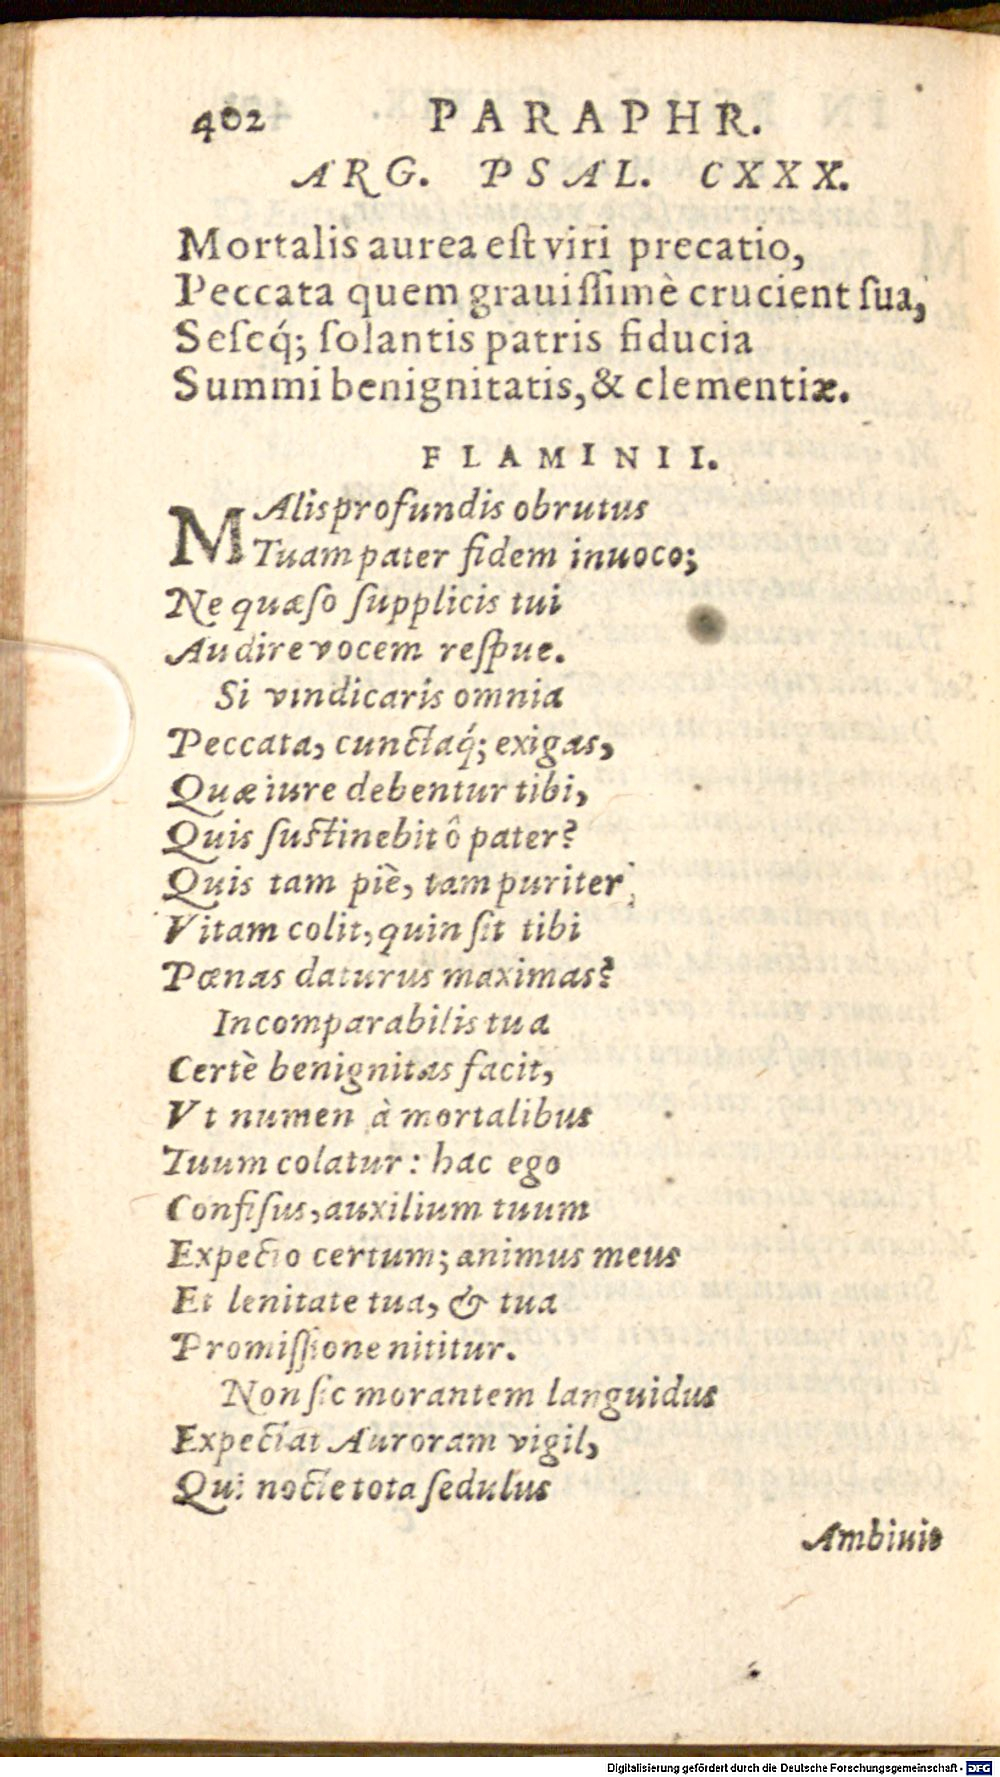 402 PARAPHR.
ARG. PSAL. CXXX.
Mortalis aurea eſt viri precatio,
Peccata quem grauiſſimè crucient ſua,
Seſeq́; ſolantis patris fiducia
Summi benignitatis, & clementiæ.
FLAMINII.
MAlis profundis obrutus
Tuam pater fidem inuoco;
Ne quæſo ſupplicis tui
Audire vocem reſpue.
Si vindicaris omnia
Peccata, cunctaq́; exigas,
Quæ iure debentur tibi,
Quis ſuſtinebit ô pater?
Quis tam piè, tam puriter
Vitam colit, quin ſit tibi
Pœnas daturus maximas?
Incomparabilis tua
Certè benignitas facit,
Vt numen à mortalibus
Tuum colatur: hac ego
Confiſus, auxilium tuum
Expecto certum; animus meus
Et lenitate tua, & tua
Promiſſione nititur.
Non ſic morantem languidus
Expectat Auroram vigil,
Qui nocte tota ſedulus
Ambiuit
Digitalisierung gefördert durch die Deutsche Forschungsgemeinschaft - DFG